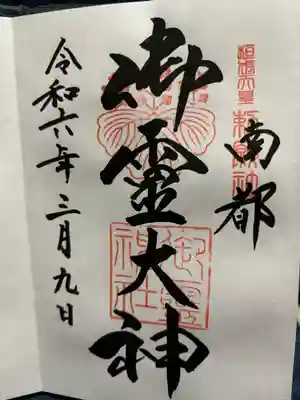 南都
御靈大神
御霊神社
令和六年三月九日